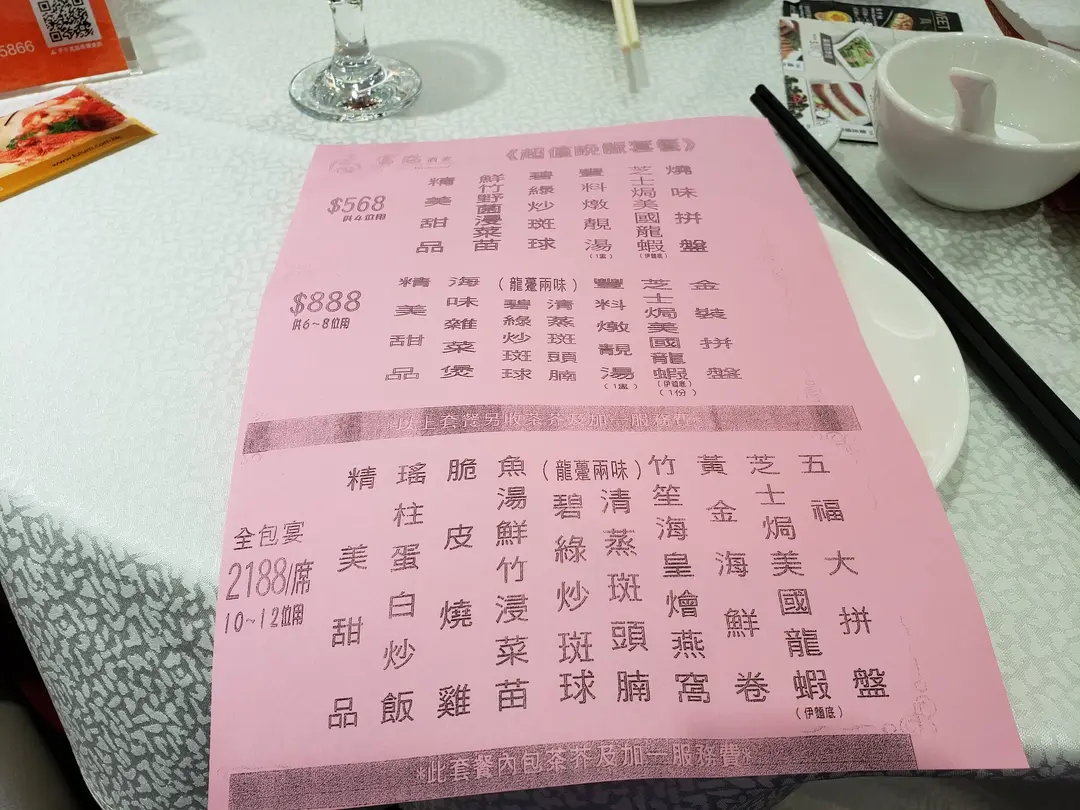 5866
www.fulum.com.hk
《超值晚飯套餐》
$568
供4位用
燒味拼盤
芝士焗美國龍蝦
(伊麵底)
豐料燉靚湯
(1窩)
碧綠炒斑球
鮮竹野菌浸菜苗
精美甜品
$888
供6~8位用
金裝拼盤
芝士焗美國龍蝦
(伊麵底)
(1份)
豐料燉靚湯
(1窩)
(龍躉兩味)
清蒸斑頭腩
碧綠炒斑球
海味雜菜煲
精美甜品
以上套餐另收茶芥及加一服務費
全包宴
2188/席
10~12位用
五福大拼盤
芝士焗美國龍蝦
(伊麵底)
黃金海鮮卷
竹笙海皇燴燕窩
(龍躉兩味)
清蒸斑頭腩
碧綠炒斑球
魚湯鮮竹浸菜苗
脆皮燒雞
瑤柱蛋白炒飯
精美甜品
*此套餐內包茶芥及加一服務費*